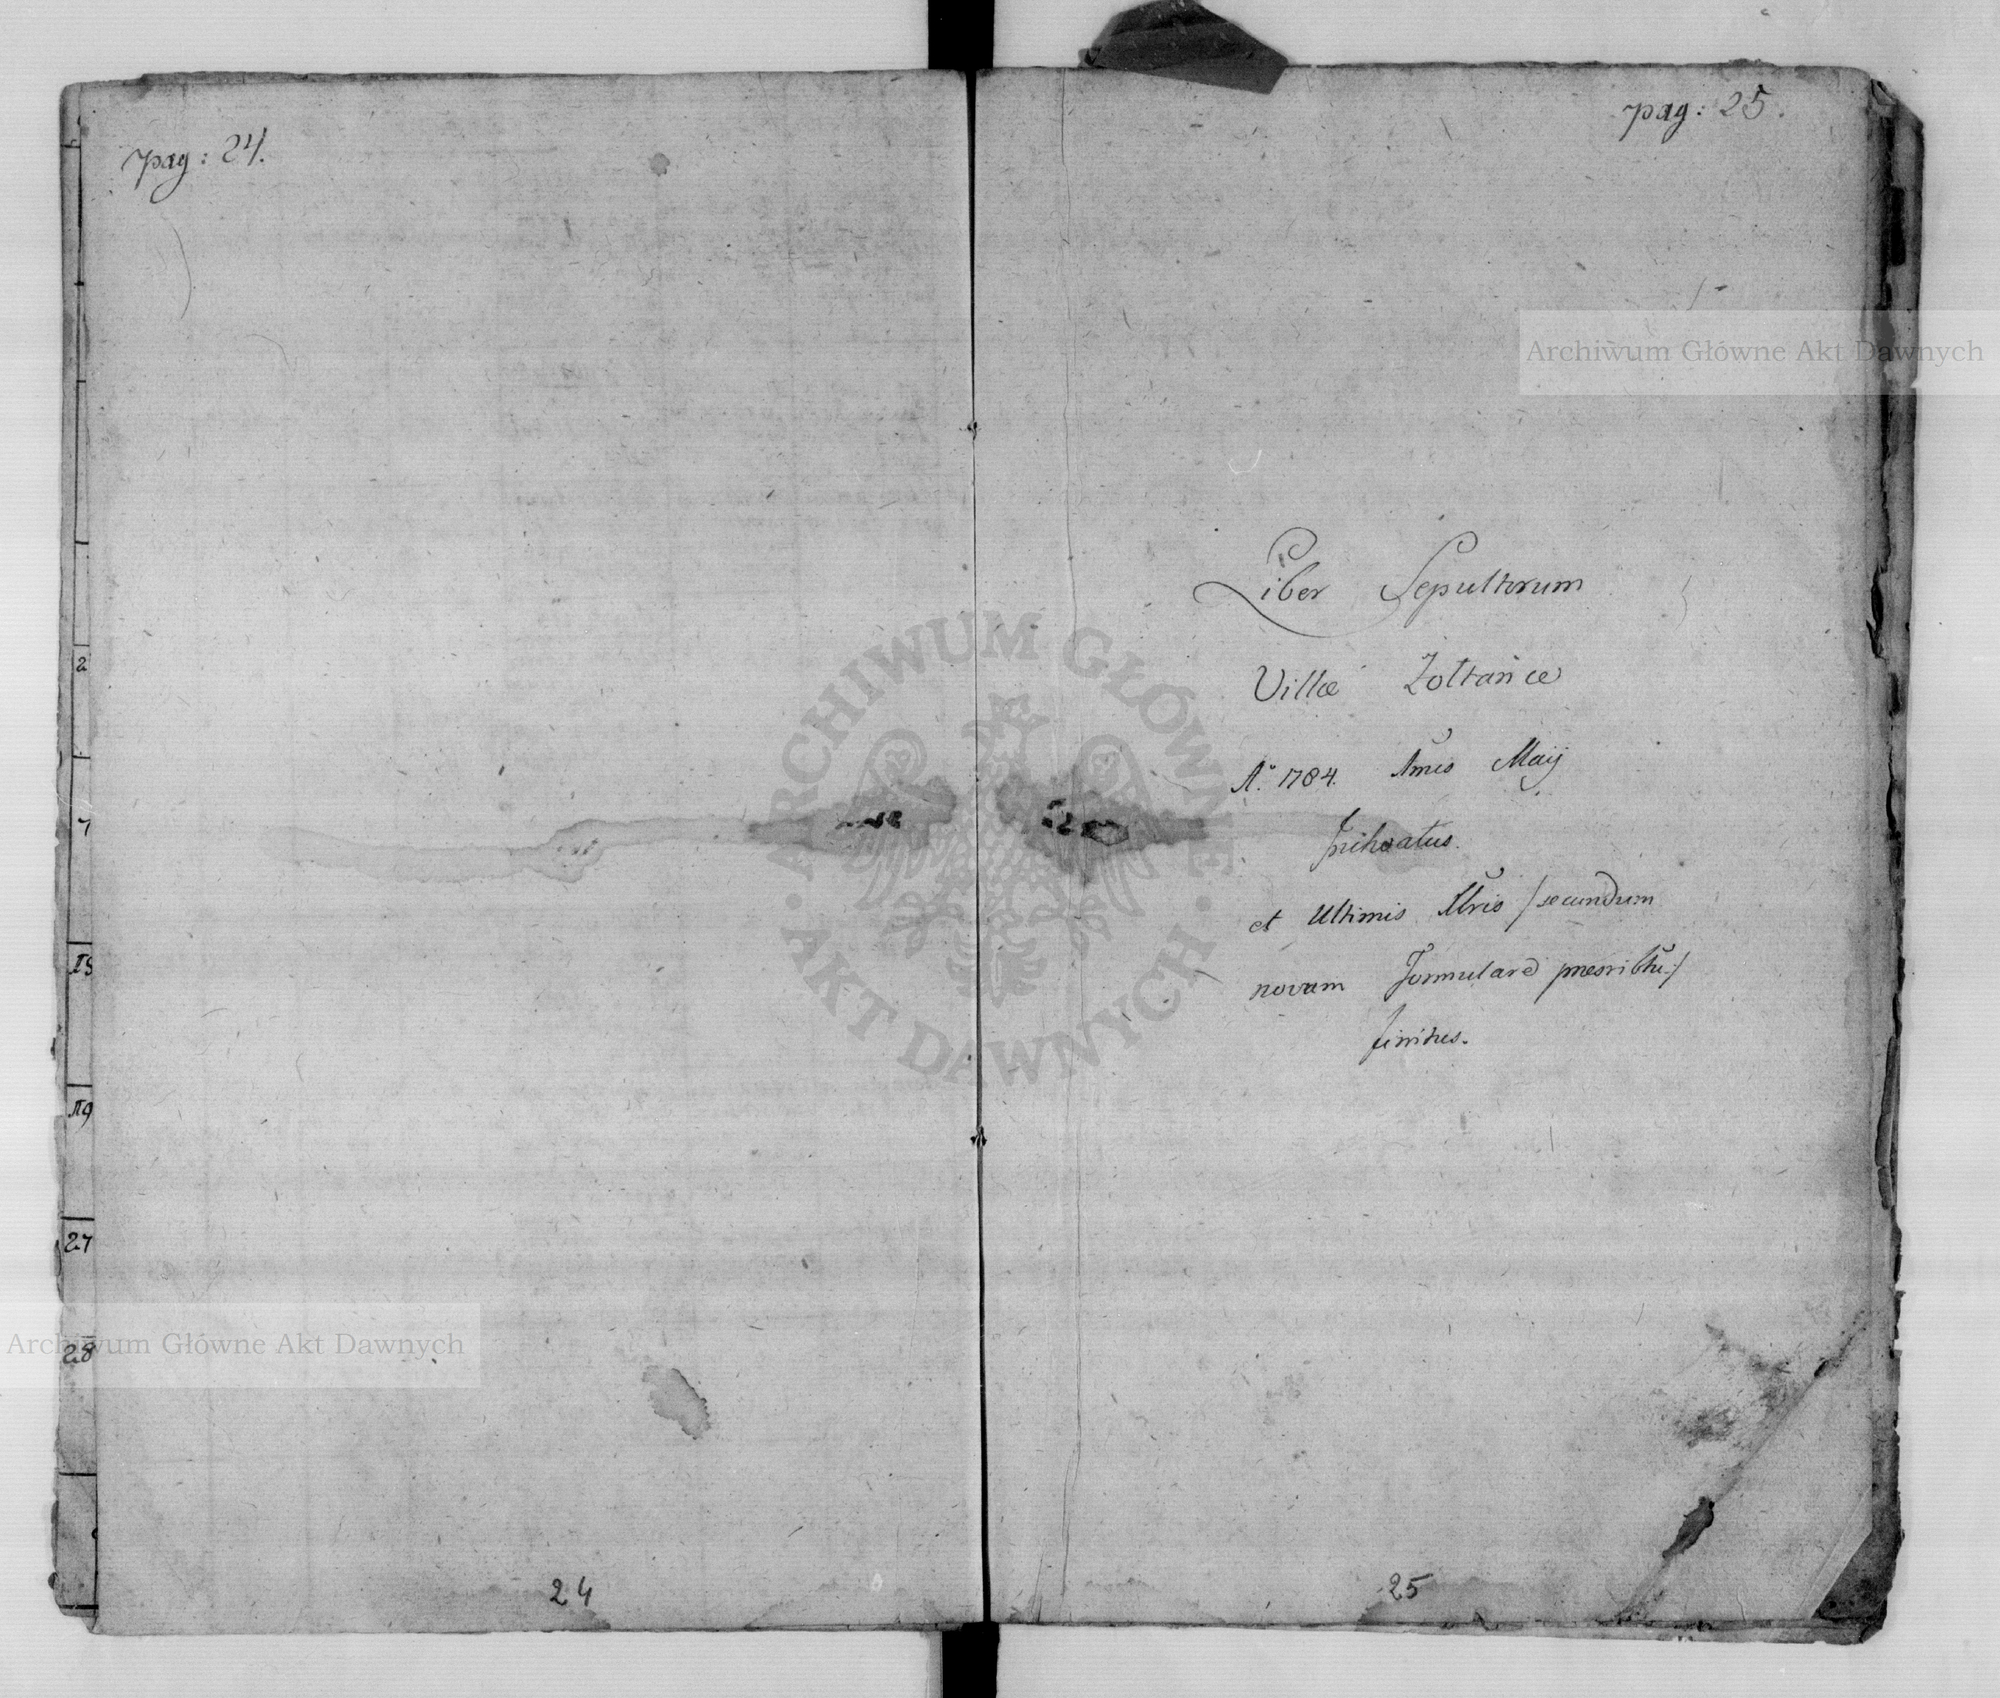 pag: 24.
pag: 25.
Archiwum Główne Akt Dawnych
Liber Sepultorum
Villæ Żołtańce
Aº. 1784. Maij
Inchoatus.
et Ultimis /secundum
novam Formulare
finitus.
ARCHIWUM GŁÓWNE · AKT DAWNYCH ·
2
7
27
28
Archiwum Główne Akt Dawnych
24
25